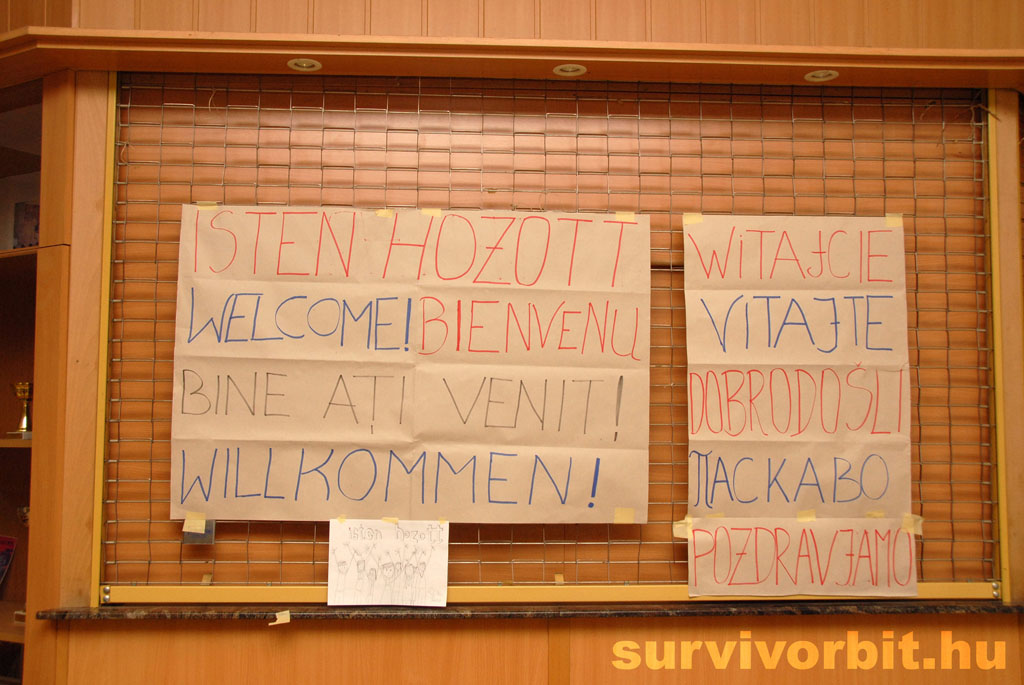 ISTEN HOZOTT
WELCOME! BIENVENU
BINE AȚI VENIT!
WILLKOMMEN!
WITAJCIE
VITAJTE
DOBRODOŠLI
ПАСКАВО
POZDRAVJAMO
isten hozott
survivorbit.hu